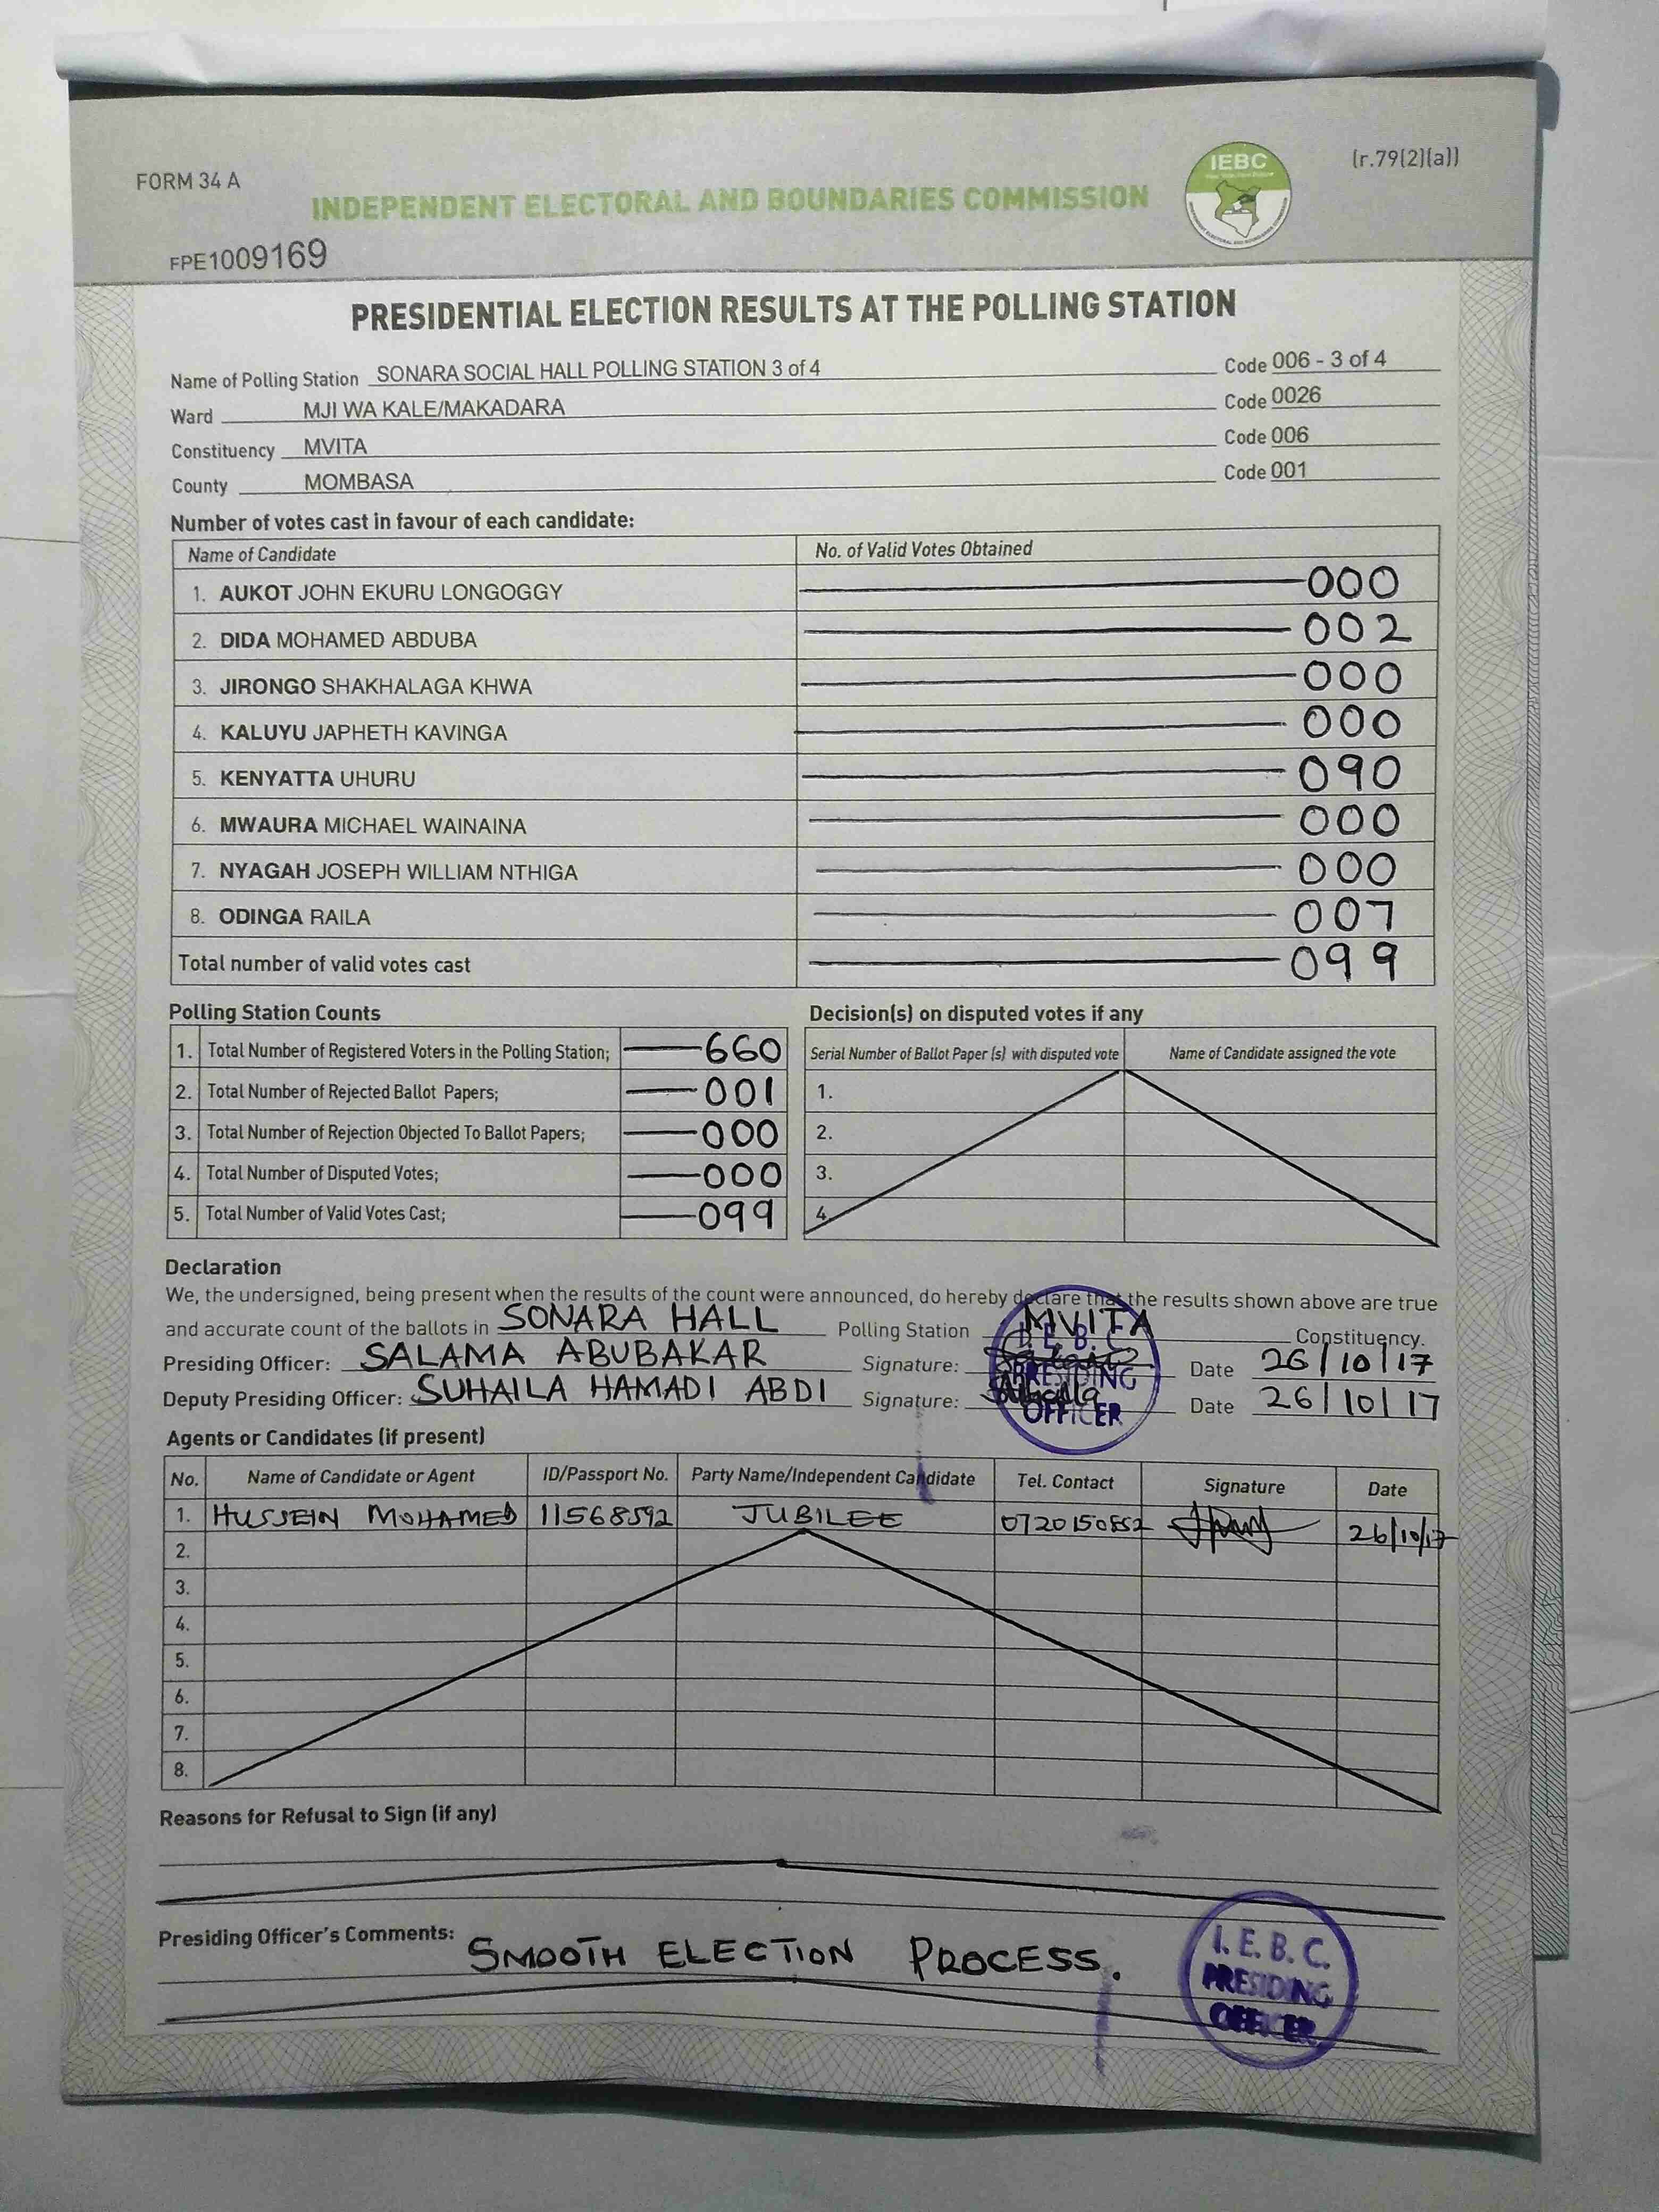 FORM 34 A
(r.79(2)(a))
INDEPENDENT ELECTORAL AND BOUNDARIES COMMISSION
IEBC
FPE1009169
PRESIDENTIAL ELECTION RESULTS AT THE POLLING STATION
Name of Polling Station SONARA SOCIAL HALL POLLING STATION 3 of 4 Code 006 - 3 of 4
Ward MJI WA KALE/MAKADARA Code 0026
Constituency MVITA Code 006
County MOMBASA Code 001
Number of votes cast in favour of each candidate:
Name of Candidate No. of Valid Votes Obtained
1. AUKOT JOHN EKURU LONGOGGY 000
2. DIDA MOHAMED ABDUBA 002
3. JIRONGO SHAKHALAGA KHWA 000
4. KALUYU JAPHETH KAVINGA 000
5. KENYATTA UHURU 090
6. MWAURA MICHAEL WAINAINA 000
7. NYAGAH JOSEPH WILLIAM NTHIGA 000
8. ODINGA RAILA 007
Total number of valid votes cast 099
Polling Station Counts
1. Total Number of Registered Voters in the Polling Station; 660
2. Total Number of Rejected Ballot Papers; 001
3. Total Number of Rejection Objected To Ballot Papers; 000
4. Total Number of Disputed Votes; 000
5. Total Number of Valid Votes Cast; 099
Decision(s) on disputed votes if any
Serial Number of Ballot Paper (s) with disputed vote Name of Candidate assigned the vote
1.
2.
3.
4.
Declaration
We, the undersigned, being present when the results of the count were announced, do hereby declare that the results shown above are true
and accurate count of the ballots in SONARA HALL Polling Station MVITA Constituency.
Presiding Officer: SALAMA ABUBAKAR Signature: Date 26/10/17
Deputy Presiding Officer: SUHAILA HAMADI ABDI Signature: Date 26/10/17
I. E. B. C.
PRESIDING
OFFICER
Agents or Candidates (if present)
No. Name of Candidate or Agent ID/Passport No. Party Name/Independent Candidate Tel. Contact Signature Date
1. HUSSEIN MOHAMED 11568592 JUBILEE 0720150852 26/10/17
2.
3.
4.
5.
6.
7.
8.
Reasons for Refusal to Sign (if any)
Presiding Officer's Comments: SMOOTH ELECTION PROCESS.
I. E. B. C.
PRESIDING
OFFICER